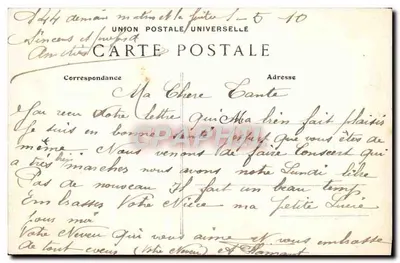 1-5-10
UNION POSTALE UNIVERSELLE
CARTE POSTALE
Correspondance
Adresse
Ma Chere Tante
J'ai reçu Votre lettre qui M'a bien fait plaisir
Je suis en bonne santé que vous êtes de
même. Nous venons de faire Concert qui
a très bien marcher nous avons notre Lundi libre
Pas de nouveau Il fait un beau temps
Embrasses Votre Nièce ma petite Lucie
pour moi
Votre Neveu qui vous aime et vous embrasse
de tout coeur (Votre Neveu)